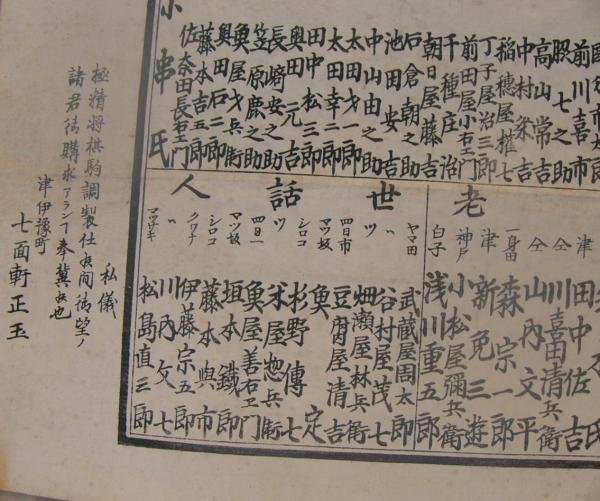 前川喜市
股七之助
高山常吉
中村粂吉
稲穂屋権七
丁子屋治三郎
前田屋小右エ門
千種庄治
朝日屋藤吉
石倉朝之助
池田安吉
中山由之助
太田才一郎
太田幸二郎
田中松三郎
奥田元吉
長崎安之助
笠原鹿之助
魚屋才兵衛
奥田石二郎
藤本吉五郎
佐奈田長右エ門
小串氏
老
津 田中佐吉
仝 川喜田清兵衛
仝 山内文平
一身田 森宗一郎
津 新免三遊
神戸 小松屋彌兵衛
白子 浅川重五郎
世話人
ヤマ田 武蔵屋周太郎
〃 谷村屋茂七
〃 畑瀬屋林兵衛
四日市 豆腐屋清吉
マツ坂 魚定
シロコ 杉野傳七
〃 米屋惣兵衛
四日一 魚屋善右エ門
マツ坂 垣本鐵郎
シロコ 藤本與市
クワナ 伊藤宗五郎
〃 川内久七
マツサキ 松島直三郎
私儀
極精将棋駒調製仕候間御望ノ
諸君御購求アランヿ奉冀候也
津伊豫町
七面軒正玉